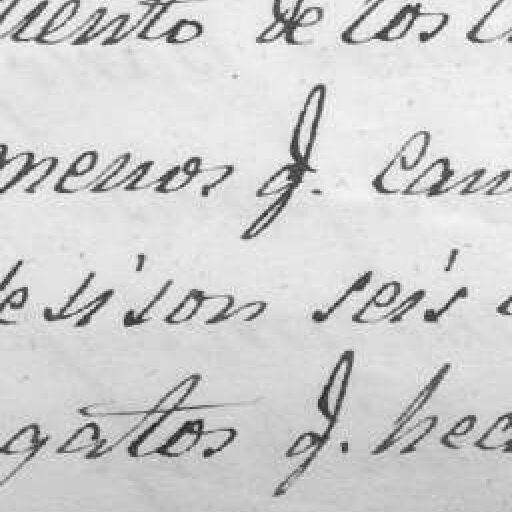 iento de los
menos q. can
de si son seis
gatos q. hec